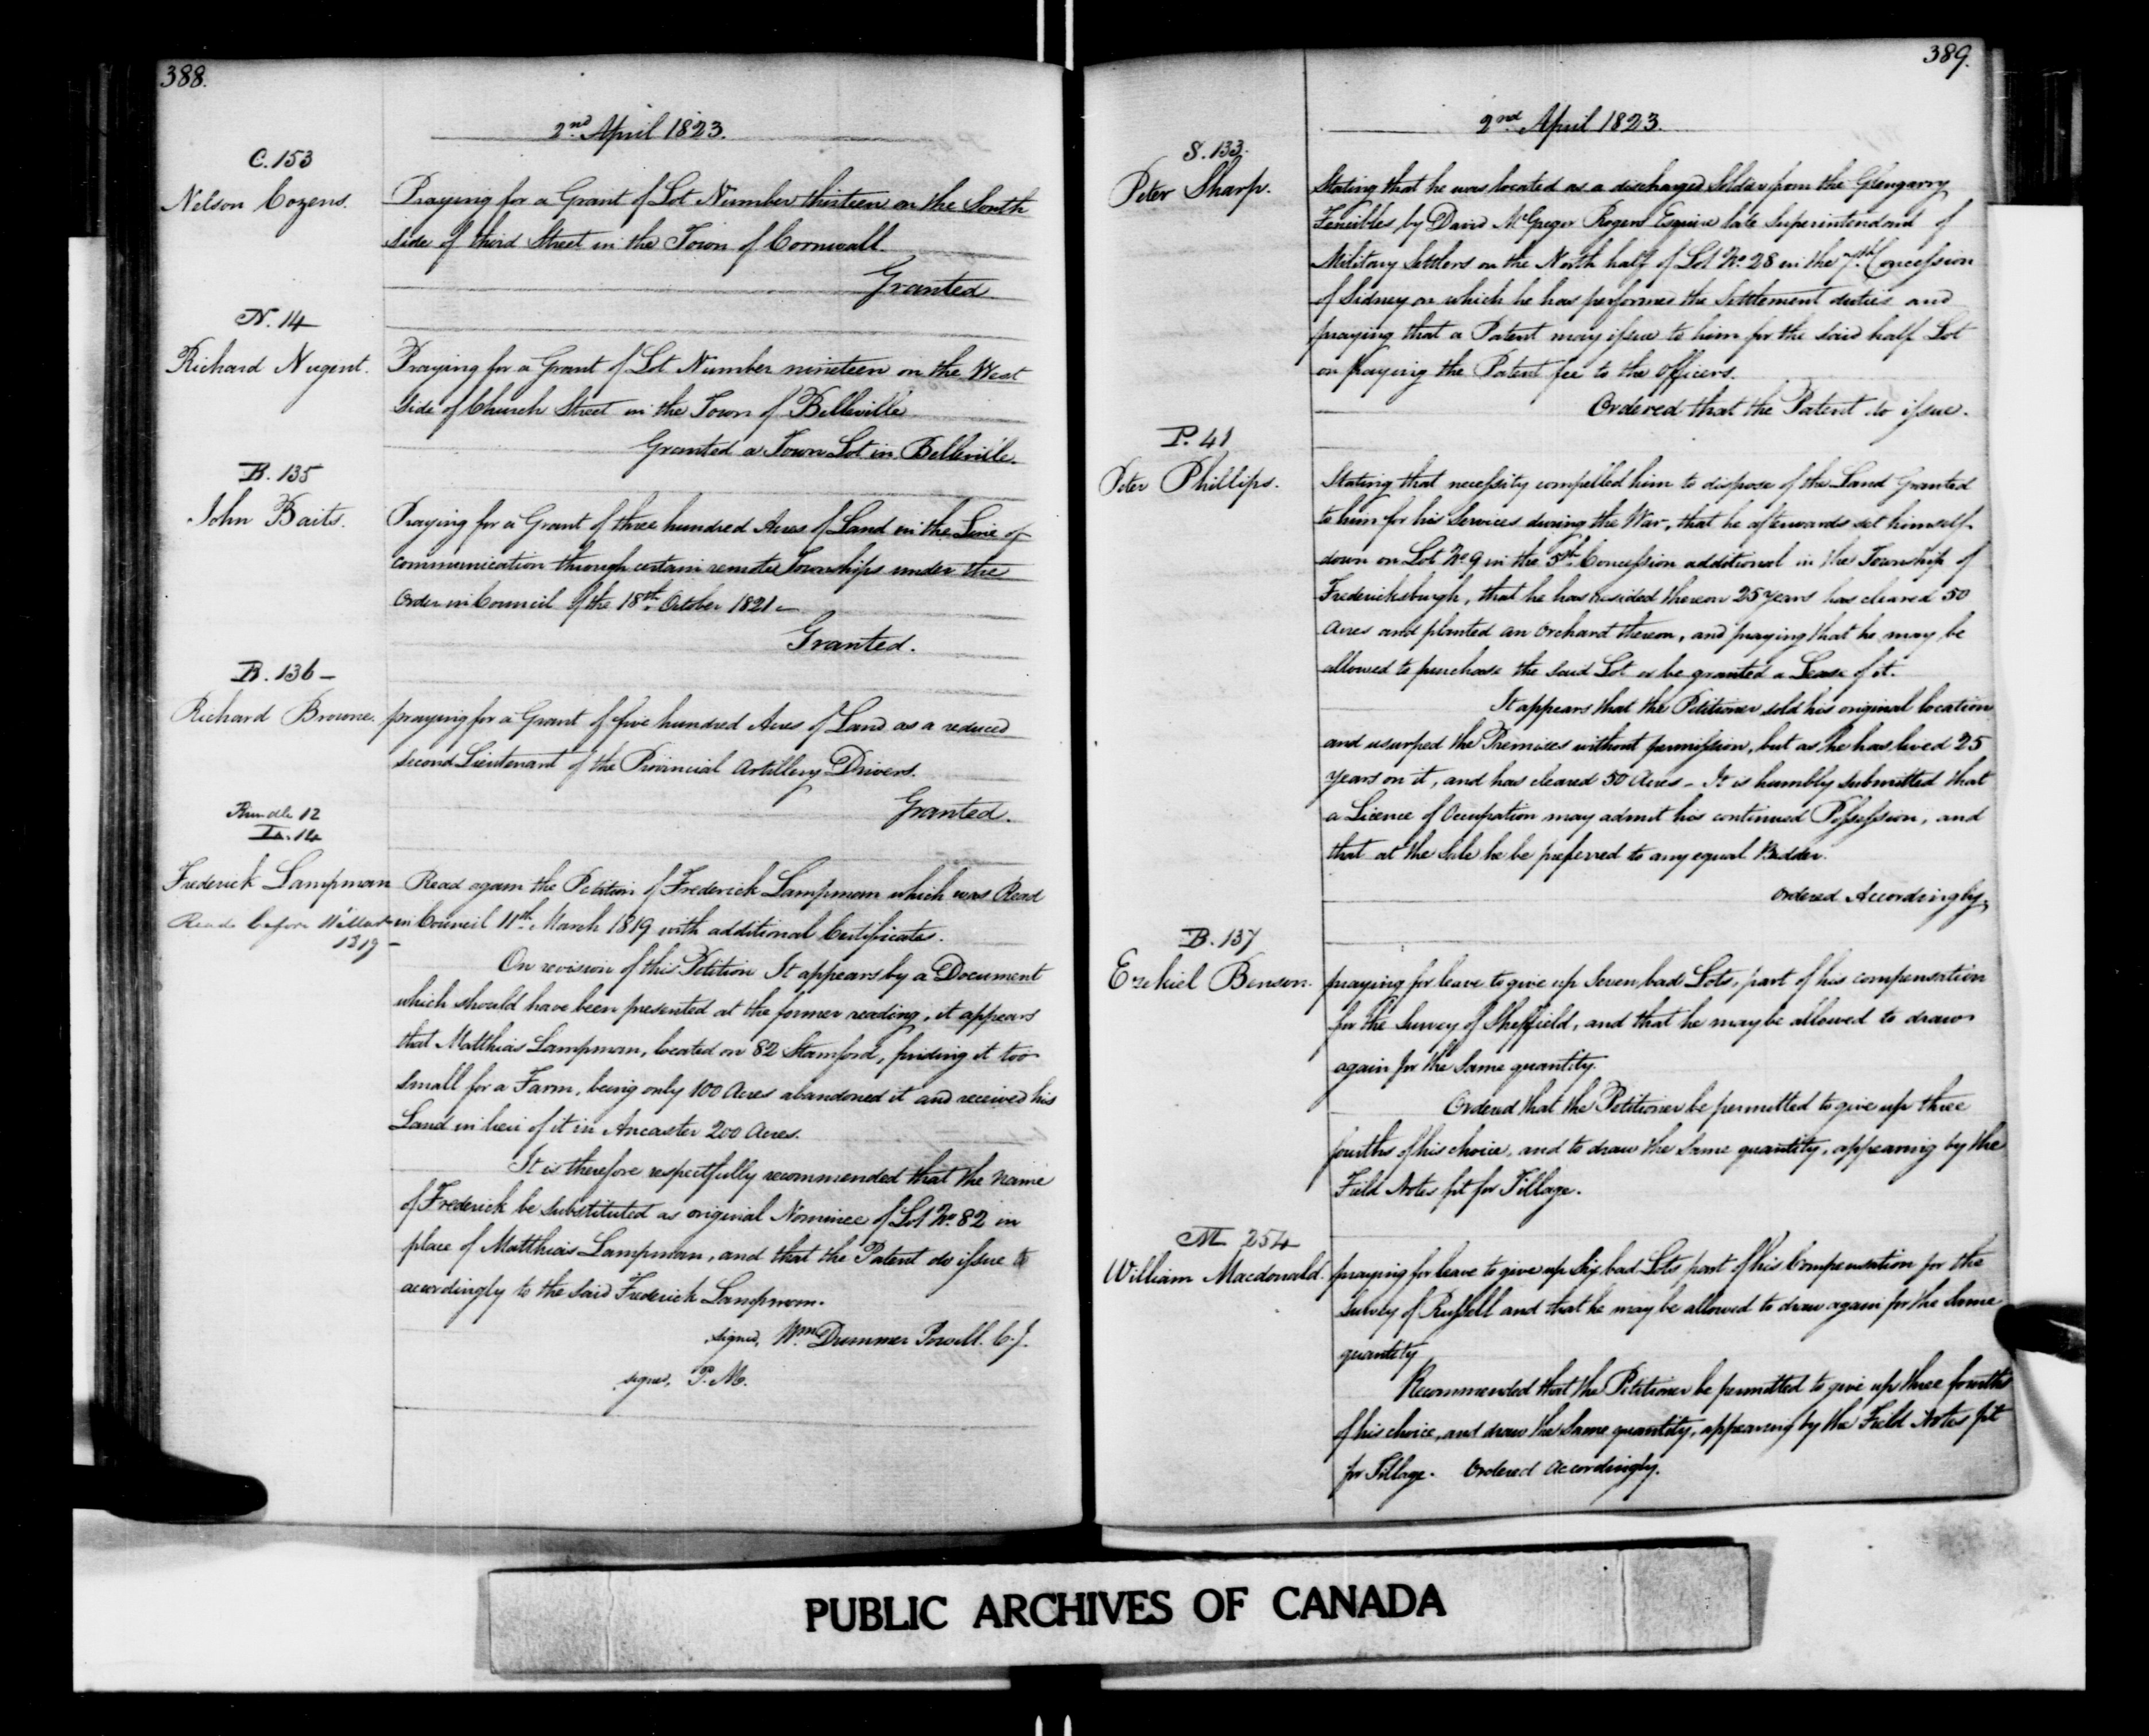 388.
2nd April 1823.
C. 153
Nelson Cozens.
Praying for a Grant of Lot Number thirteen on the South
side of third Street in the Town of Cornwall.
Granted
N. 14
Richard Nugent.
Praying for a Grant of Lot Number nineteen on the West
side of Church Street in the Town of Belleville
Granted a Town Lot in Belleville.
B. 135
John Baits.
Praying for a Grant of three hundred Acres of Land on the Line of
communication through certain remote Townships under the
Order in Council of the 18th October 1821 –
Granted.
B. 136 –
Richard Browne.
praying for a Grant of five hundred Acres of Land as a reduced
second Lieutenant of the Provincial Artillery Drivers.
Granted.
Bundle 12
L. 14
Frederick Lampman
Read before
1819 –
Read again the Petition of Frederick Lampman which was Read
in Council 11th March 1819 with additional Certificates.
On revision of this Petition It appears by a Document
which should have been presented at the former reading, it appears
that Matthias Lampman, located on 82 Stamford, finding it too
small for a Farm, being only 100 Acres abandoned it and received his
Land in lieu of it in Ancaster 200 Acres.
It is therefore respectfully recommended that the name
of Frederick be substituted as original Nominee of Lot No. 82 in
place of Matthias Lampman, and that the Patent do issue to
accordingly to the said Frederick Lampman.
signed, Wm Dummer Powell. C.J.
signed, P. M.
389.
2nd April 1823.
S. 133.
Peter Sharp.
Stating that he was located as a discharged Soldier from the Glengarry
Fencibles by David McGregor Rogers Esquire late Superintendant of
Military Settlers on the North half of Lot No. 28 in the 7th Concession
of Sidney on which he has performed the Settlement duties and
praying that a Patent may issue to him for the said half Lot
on paying the Patent fee to the Officers.
Ordered that the Patent do issue.
P. 41
Peter Phillips.
Stating that necessity compelled him to dispose of the Land Granted
to him for his Services during the War, that he afterwards set himself
down on Lot No 9 in the 5th Concession additional in the Township of
Fredericksburgh, that he has resided thereon 25 years has cleared 50
Acres and planted an Orchard thereon, and praying that he may be
allowed to purchase the said Lot or be granted a Lease of it.
It appears that the Petitioner sold his original location
and usurped the Premises without permission, but as he has lived 25
years on it, and has cleared 50 Acres – It is humbly submitted that
a Licence of Occupation may admit his continued Possession, and
that at the Sale he be preferred to any equal Bidder.
Ordered Accordingly.
B. 137
Ezekiel Benson.
praying for leave to give up Seven bad Lots, part of his compensation
for the Survey of Sheffield, and that he may be allowed to draw
again for the same quantity.
Ordered that the Petitioner be permitted to give up three
fourths of his choice, and to draw the same quantity, appearing by the
Field Notes fit for Tillage.
M 254
William Macdonald.
praying for leave to give up Six bad Lots part of his Compensation for the
Survey of Russell and that he may be allowed to draw again for the same
quantity
Recommended that the Petitioner be permitted to give up three fourths
of his choice, and draw the same quantity, appearing by the Field Notes fit
for Tillage. Ordered Accordingly.
PUBLIC ARCHIVES OF CANADA